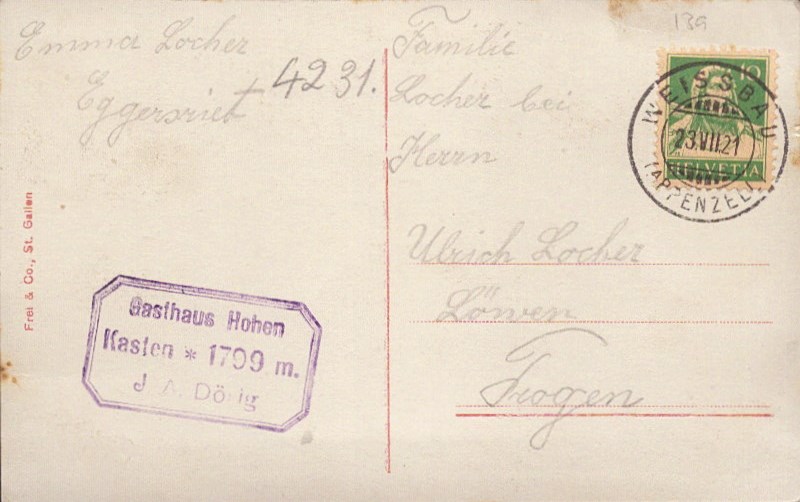 Emma Locher
Eggersriet
4231.
Frei & Co., St. Gallen
Gasthaus Hohen
Kasten * 1799 m.
J. A. Dörig
139
Familie
Locher bei
Herrn
Ulrich Locher
Löwen
Trogen
10
HELVETIA
WEISSBAD
23.VII.21
(APPENZELL)